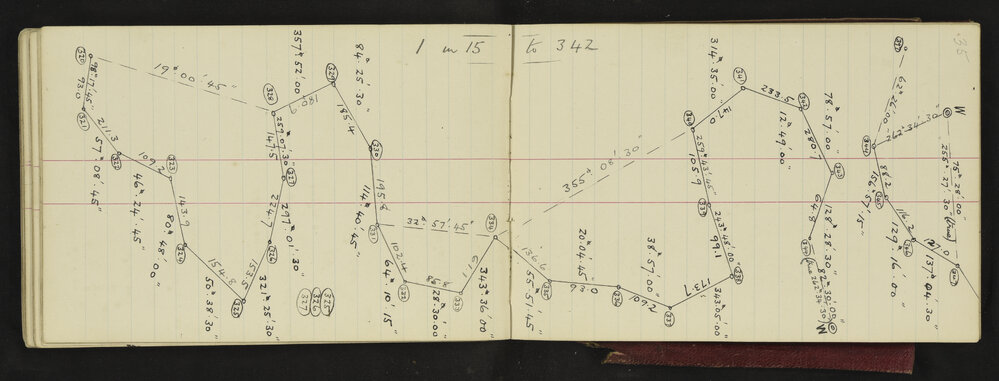 1 in 15 to 342
35
320
98°.17'.45"
93.0
321
211.3
57°.08'.45"
322
109.2
46°.24'.45"
323
143.9
80°.48'.00"
324
154.8
50°.38'.30"
325
153.5
321°.25'.30"
326
224.7
297°.01'.30"
327
147.5
259°.07'.30"
328
19°.00'.45"
180.9
357°.52'.00"
329
84°.25'.30"
185.4
330
195.8
114°.40'.45"
331
102.4
64°.10'.15"
332
85.8
28°.30.00
333
61.1
343°.36'.00"
334
32°.57'.45"
325
326
327
136.6
55°.51'.45
335
93.0
20°.04'.45"
336
109.2
38°.57'.00"
337
173.7
343°.05'.00"
338
99.1
243°.48'.00"
339
105.9
259°.43'.45"
340
355°.08'.30
147.0
314°.35'.00"
341
233.5
12°.49'.00"
342
280.7
78°.57'.00"
64.8
128°.28'.30"
82°.30'.00"
(true 262°.34'.30)
W
62°.26'.00
262°.34'.30"
W
75°.28'.00"
255°.27'.30" (true)
88.2
156°.57'.15"
116.2
129°.16'.00"
137°.04'.30